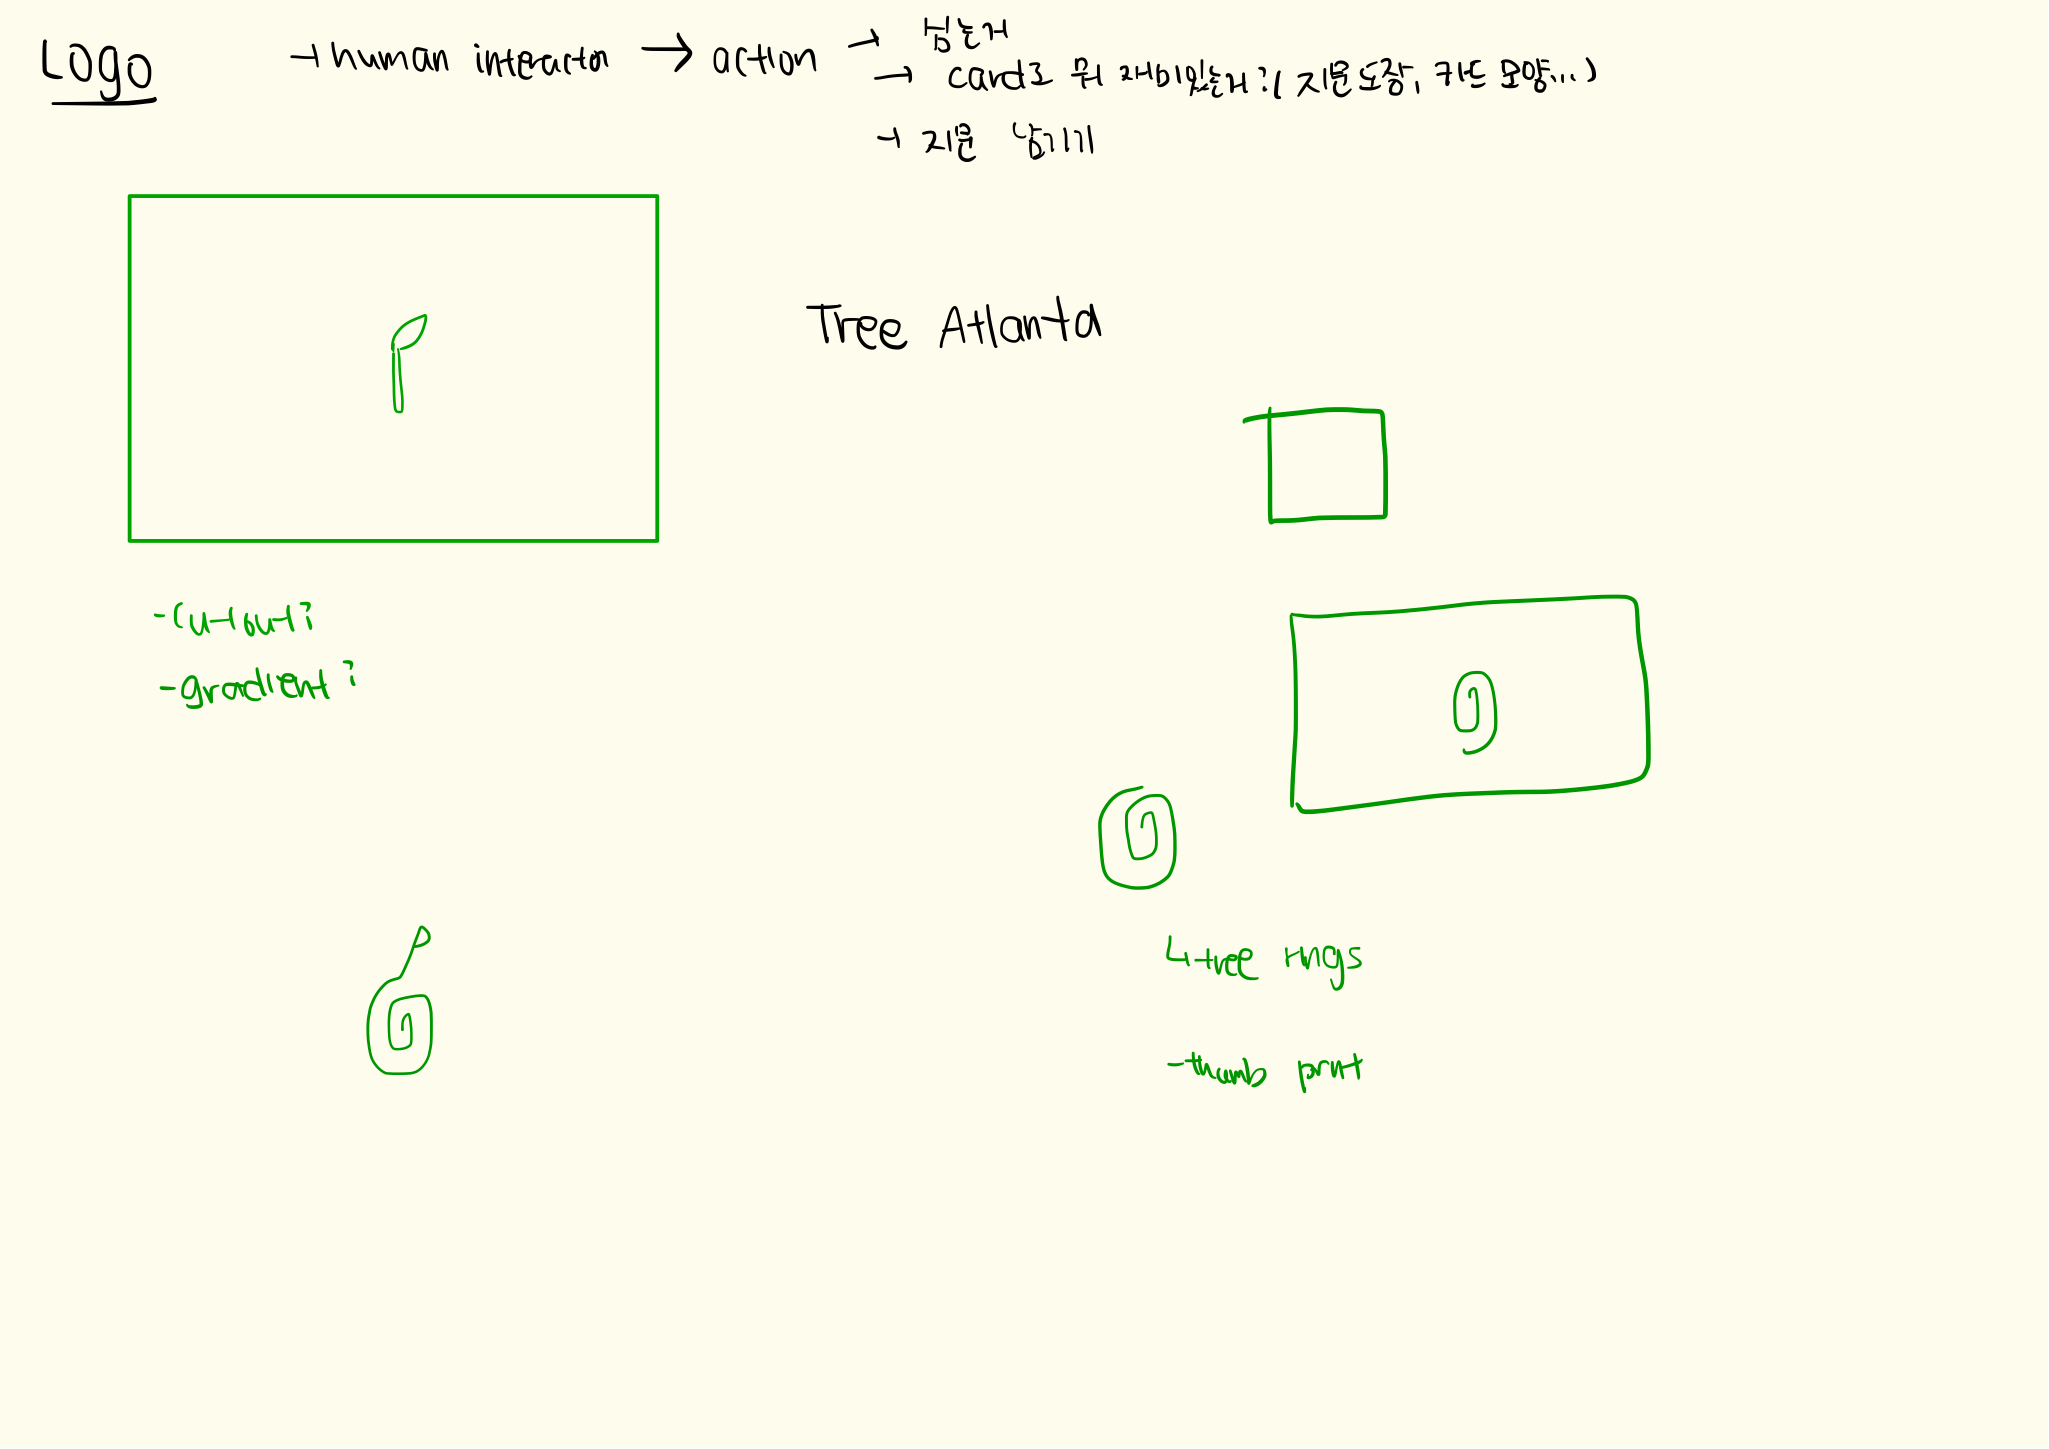 Logo
→ human interaction → action → 심는거
→ card로 뭐 재미있는거?( 지문도장, 카드 모양...)
→ 지문 남기기
Tree Atlanta
- Cutout?
- gradient?
↳ tree rings
- thumb print